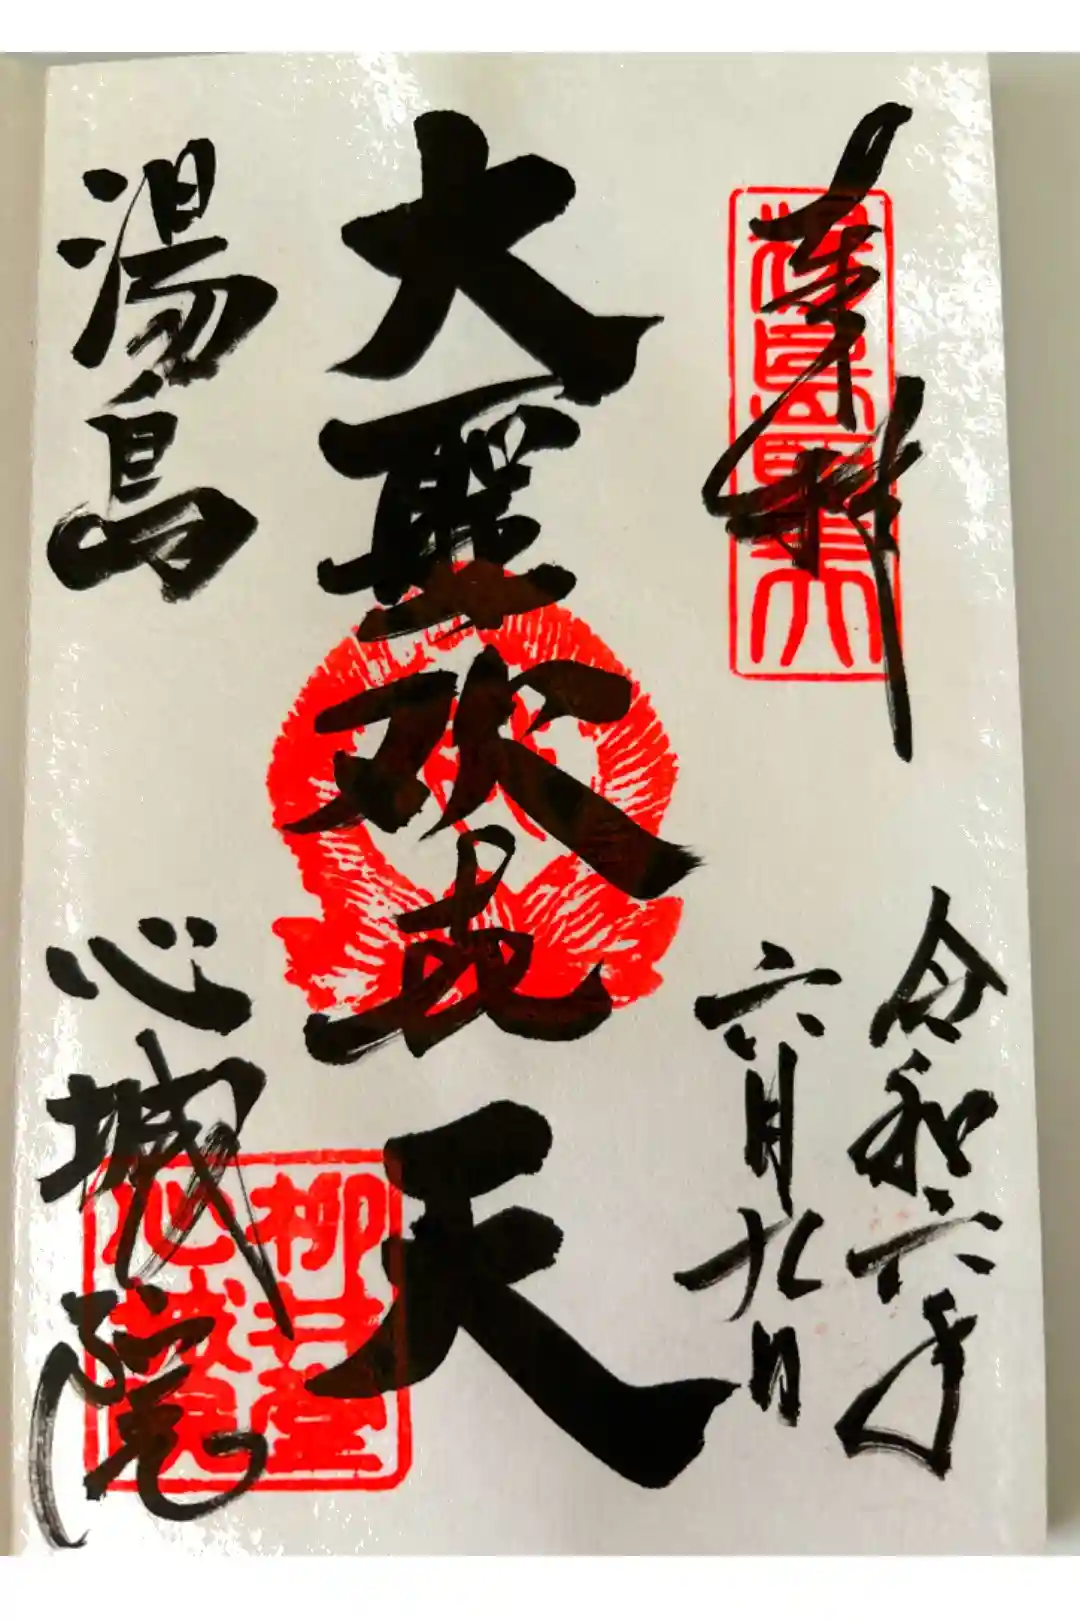 奉拝
令和六年
六月九日
大聖歓喜天
湯島
心城院
柳井堂
心城院